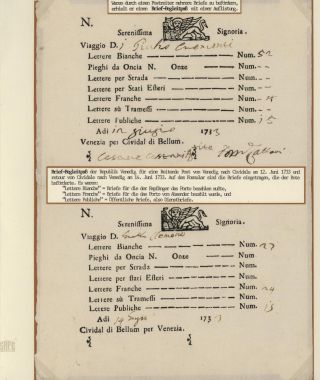 Wenn durch einen Postreiter nahmen Briefe zu befördern,
erhielt er einen Brief-Begleitpaß mit einer Auflistung.
N.
Serenissima Signoria.
Viaggio D.
Lettere Bianche Num. 52
Pieghi da Oncia N. Onze Num.
Lettere per Strada Num.
Lettere per Stati Esteri Num.
Lettere Franche Num.
Lettere sù Tramessi Num.
Lettere Publiche Num. 15
Adi 12 giugno 1733
Venezia per Cividal di Bellum.
Brief-Begleitpaß der Republik Venedig für eine Reitende Post von Venedig nach Cividale am 12. Juni 1733 und
retour von Cividale nach Venedig am 14. Juni 1733. Auf dem Formular sind die Briefe eingetragen, die der Bote
beförderte. Es waren:
"Lettere Bianche" = Briefe für die der Empfänger das Porto bezahlen mußte,
"Lettere Franche" = Briefe für die das Porto vom Absender bezahlt wurde, und
"Lettere Publiche" = Öffentliche Briefe, also Dienstbriefe.
N.
Serenissima Signoria.
Viaggio D.
Lettere Bianche Num. 27
Pieghi da Oncia N. Onze Num.
Lettere per Strada Num.
Lettere per Stati Esteri Num.
Lettere Franche Num.
Lettere sù Tramessi Num.
Lettere Publiche Num. 13
Adi 14 1733
Cividal di Bellum per Venezia.